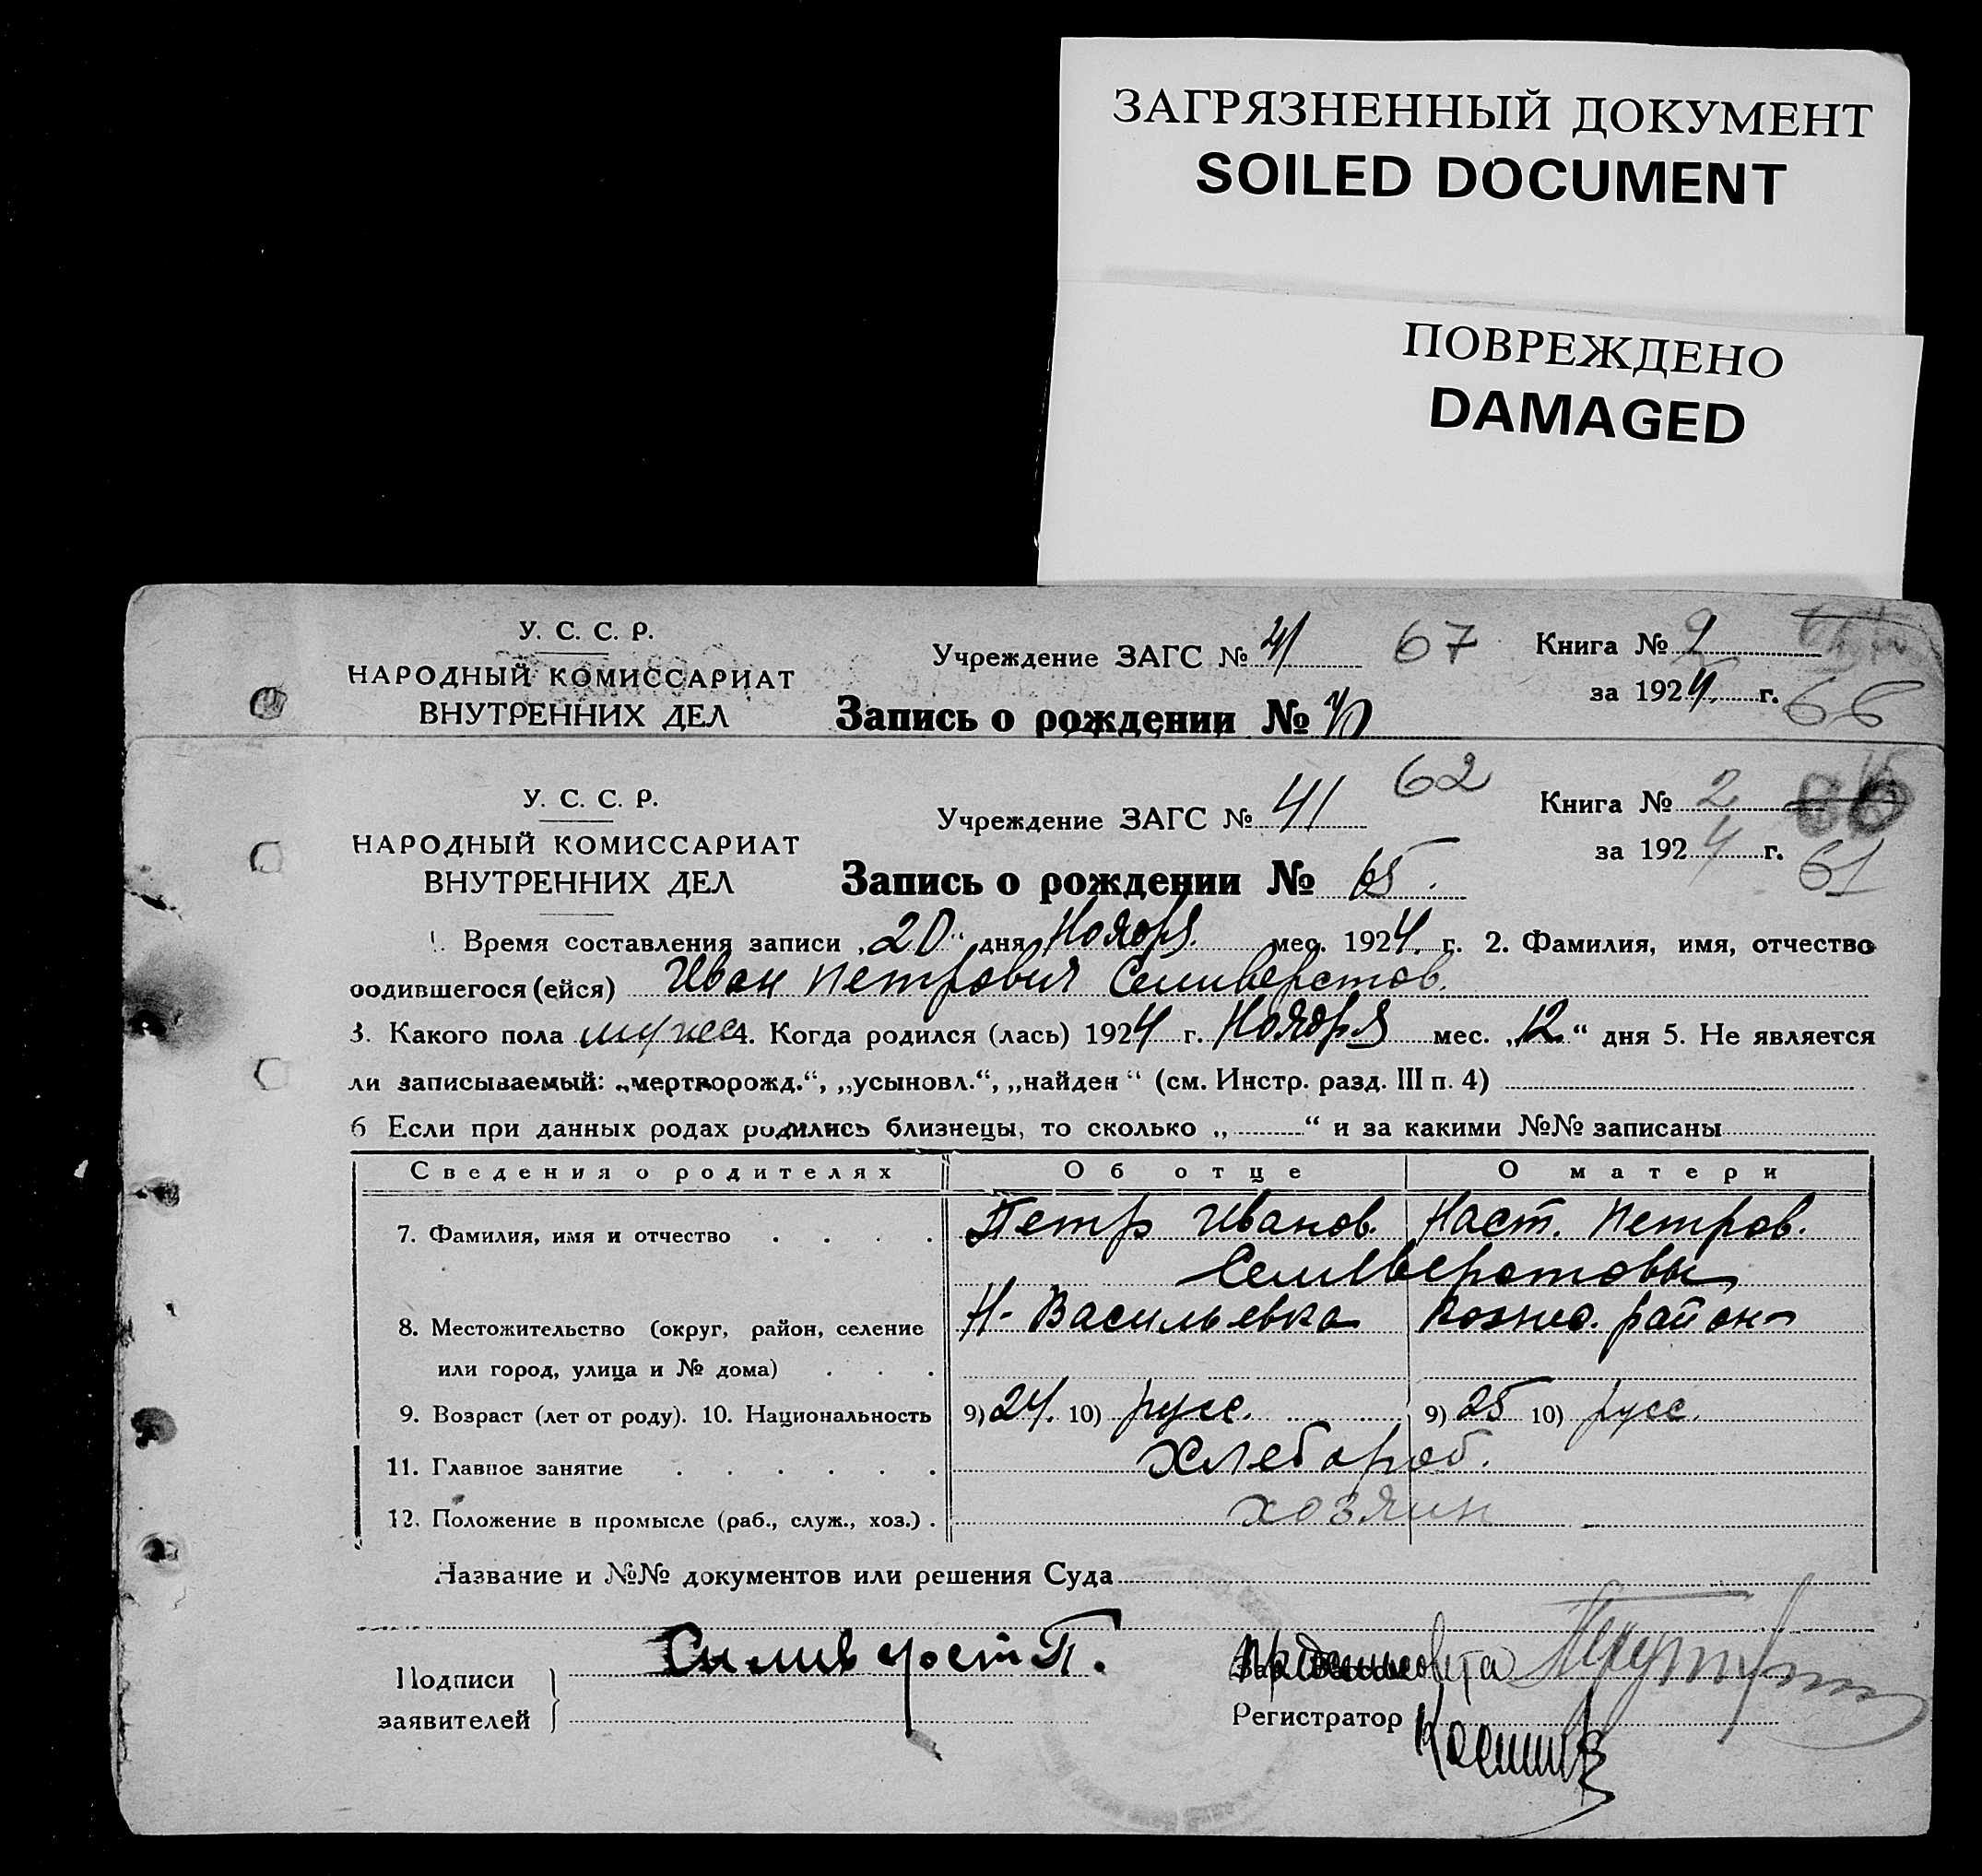 ЗАГРЯЗНЕННЫЙ ДОКУМЕНТ
SOILED DOCUMENT
ПОВРЕЖДЕНО
DAMAGED
У. С. С. Р.
НАРОДНЫЙ КОМИССАРИАТ
ВНУТРЕННИХ ДЕЛ
Учреждение ЗАГС № 41 67
Запись о рождении №
Книга № 2
за 1924 г. 66
У. С. С. Р.
НАРОДНЫЙ КОМИССАРИАТ
ВНУТРЕННИХ ДЕЛ
Учреждение ЗАГС № 41 62
Запись о рождении № 65.
Книга № 2
за 1924 г. 61
1. Время составления записи „20“ дня Ноября мес. 1924 г. 2. Фамилия, имя, отчество
родившегося (ейся) Иван Петрович Селиверстов.
3. Какого пола мужс 4. Когда родился (лась) 1924 г. Ноября мес. „12“ дня 5. Не является
ли записываемый: „мертворожд.“, „усыновл.“, „найден“ (см. Инстр. разд. III п. 4)
6 Если при данных родах родились близнецы, то сколько „ “ и за какими №№ записаны
Сведения о родителях Об отце О матери
7. Фамилия, имя и отчество Петр Иванов. Наст. Петров.
Селиверстовы
8. Местожительство (округ, район, селение Н-Васильевка район
или город, улица и № дома)
9. Возраст (лет от роду). 10. Национальность 9) 24. 10) русс. 9) 25 10) русс.
11. Главное занятие Хлебороб.
12. Положение в промысле (раб., служ., хоз.) . хозяин
Название и №№ документов или решения Суда
Подписи
заявителей
Силиверст П.
Регистратор